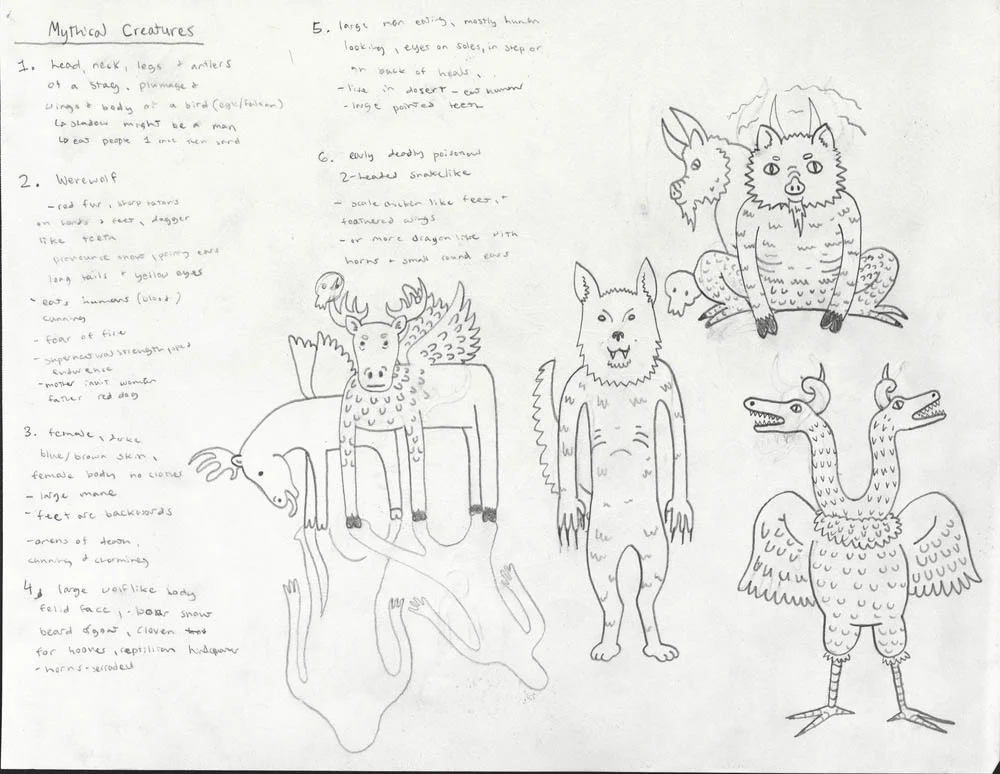 Mythical Creatures
1. head, neck, legs & antlers
of a stag, plumage &
wings & body of a bird (/falcon)
↳ shadow might be a man
↳ eat people 1 then
2. Werewolf
- red fur, sharp talons
on hands & feet, dagger
like teeth
pronounce snout, pointy ears
long tails & yellow eyes
- eats humans (blood)
cunning
- fear of fire
- supernatural strength speed
endurence
- mother inuit woman
father red dog
3. female,
blue/brown skin,
female body no clothes
- large mane
- feet are backwards
- omens of death,
cunning & charming
4. large wolflike body
felid face, boar snout
beard of goat, cloven
for hooves, reptilian hindquarters
- horns - serraded
5. large man eating, mostly human
looking, eyes on soles, in step or
on back of heals,
- live in desert - eat human
- large pointed teeth
6. deadly poisonous
2-headed snakelike
- scale chicken like feet, &
feathered wings
- or more dragon like with
horns & small round ears